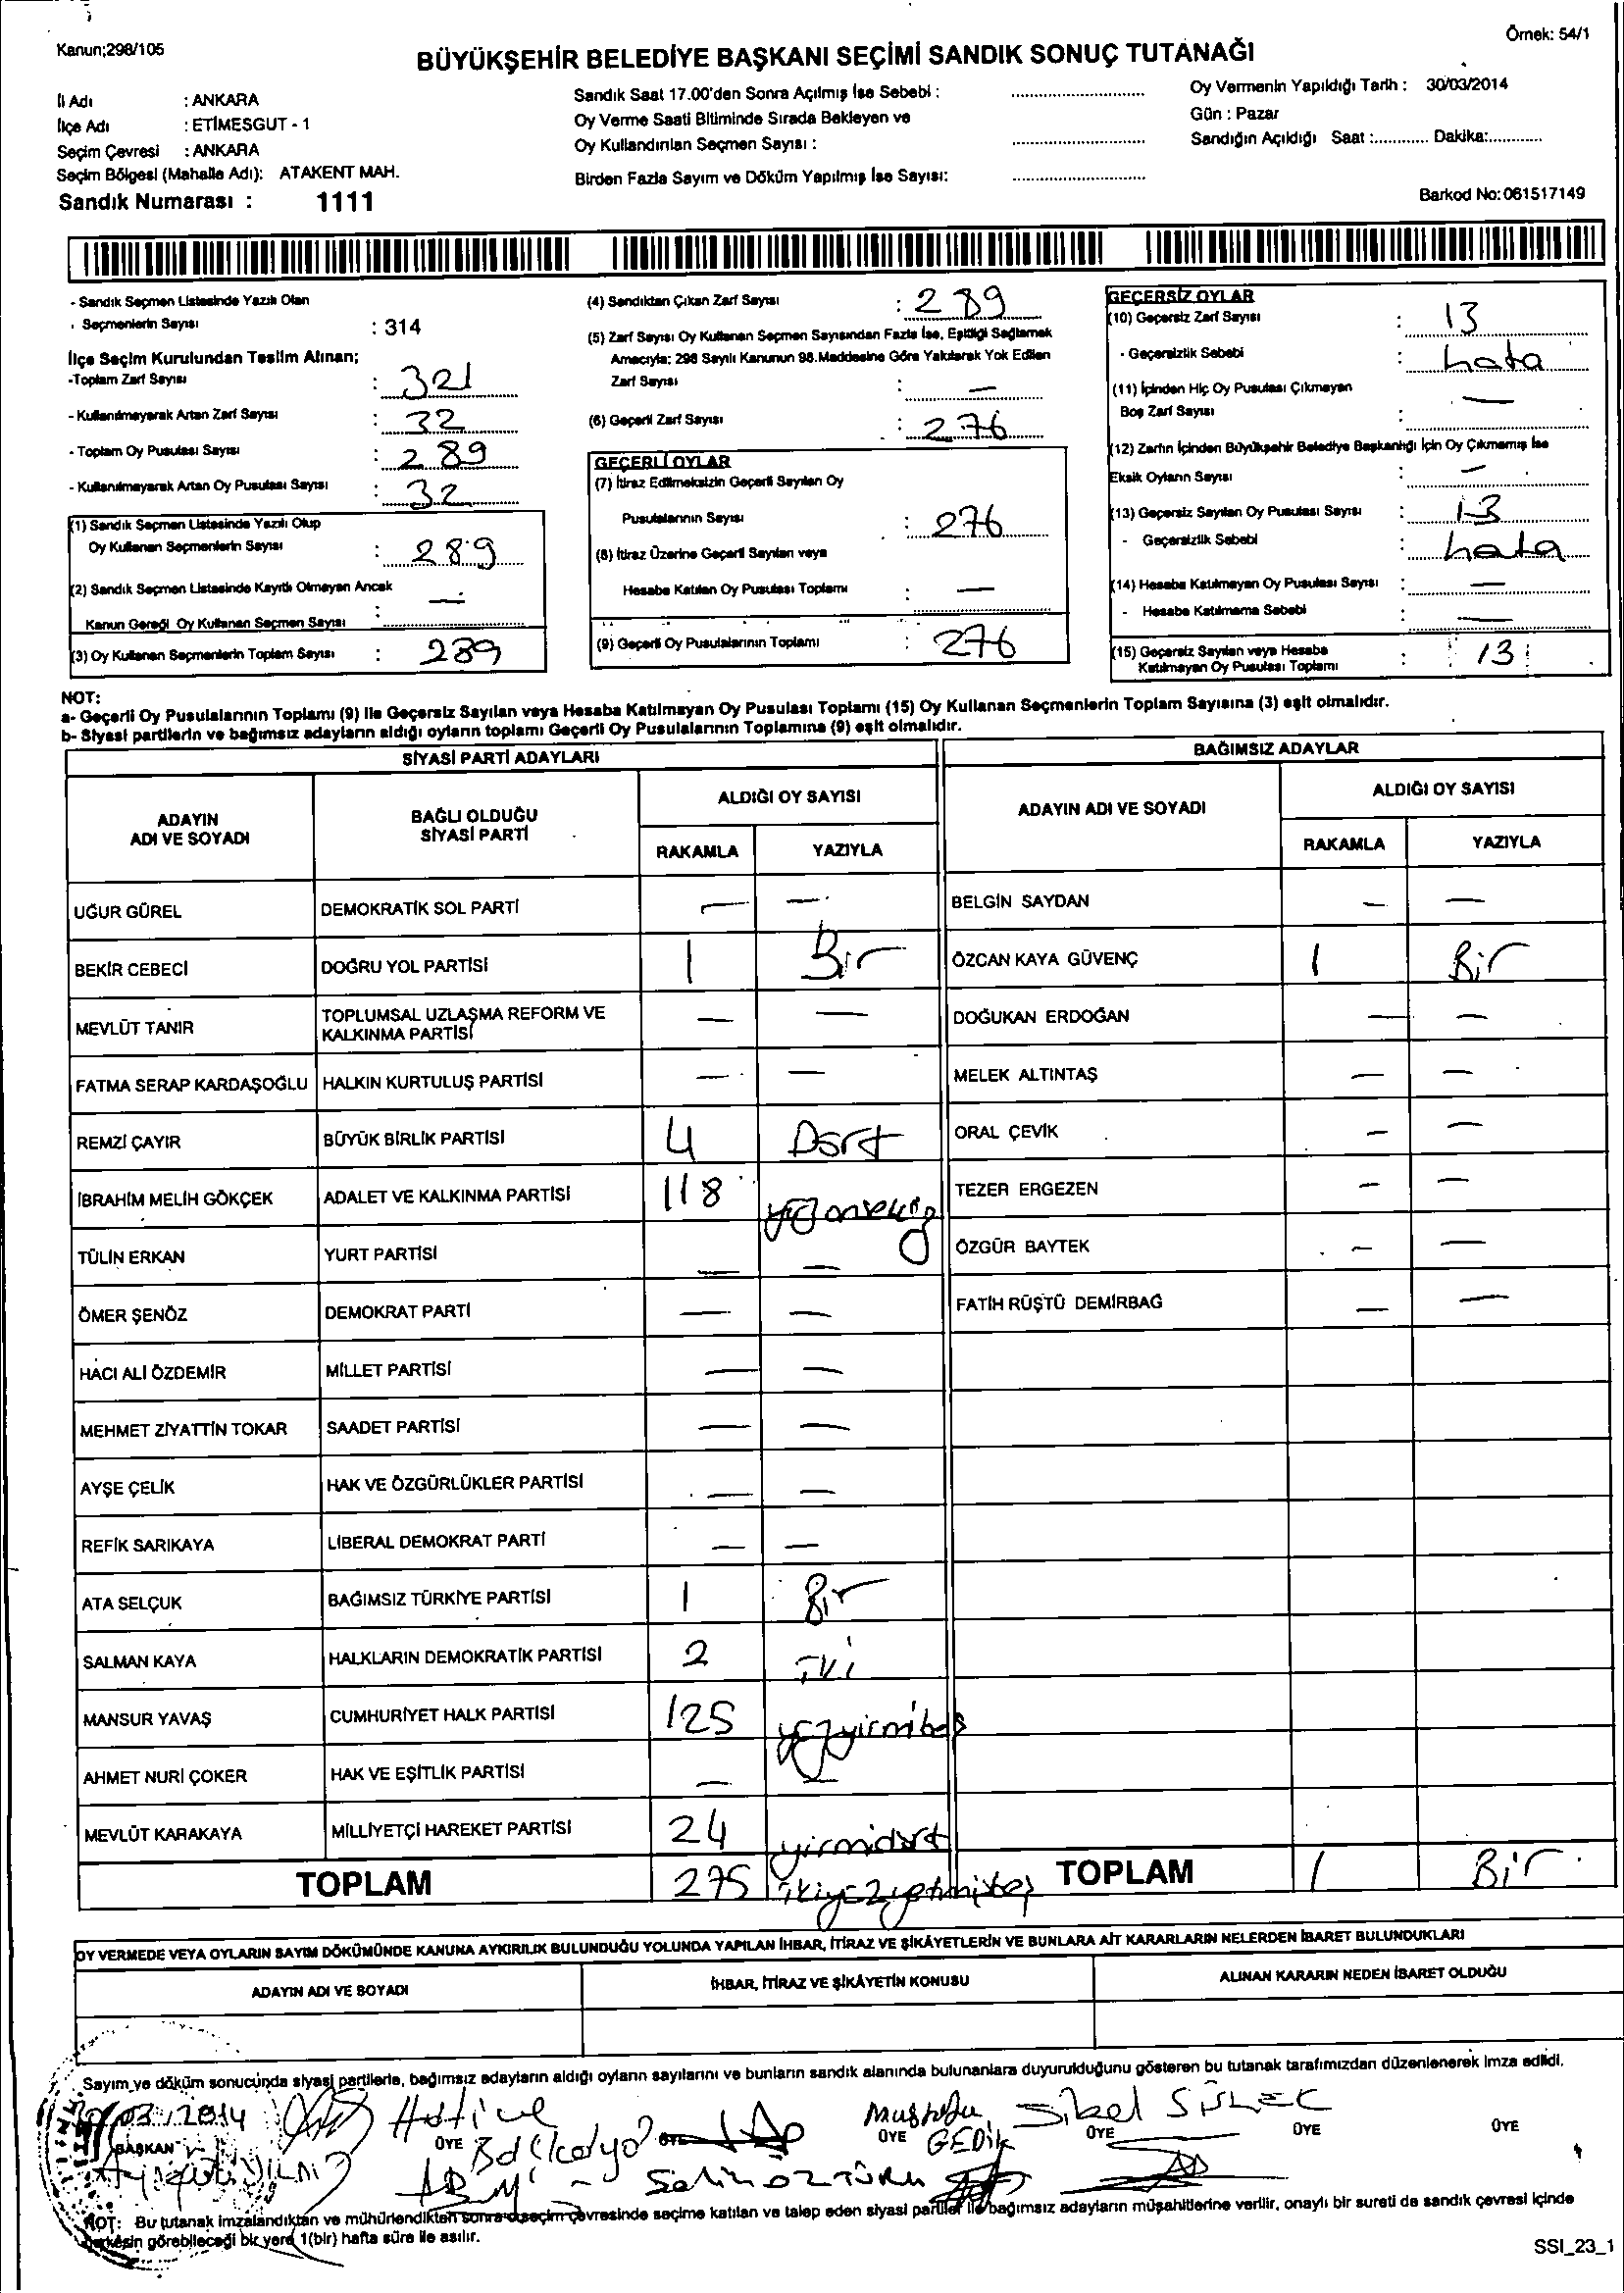 Kanun;298/105
Örnek: 54/1
BÜYÜKŞEHİR BELEDİYE BAŞKANI SEÇİMİ SANDIK SONUÇ TUTANAĞI
İl Adı : ANKARA
İlçe Adı : ETİMESGUT - 1
Seçim Çevresi : ANKARA
Seçim Bölgesi (Mahalle Adı): ATAKENT MAH.
Sandık Numarası : 1111
Sandık Saat 17.00'den Sonra Açılmış İse Sebebi : ............................
Oy Verme Saati Bitiminde Sırada Bekleyen ve
Oy Kullandırılan Seçmen Sayısı : ............................
Birden Fazla Sayım ve Döküm Yapılmış İse Sayısı: ............................
Oy Vermenin Yapıldığı Tarih : 30/03/2014
Gün : Pazar
Sandığın Açıldığı Saat :............ Dakika:............
Barkod No: 061517149
- Sandık Seçmen Listesinde Yazılı Olan
Seçmenlerin Sayısı : 314
İlçe Seçim Kurulundan Teslim Alınan;
-Toplam Zarf Sayısı : 321
- Kullanılmayarak Artan Zarf Sayısı : 32
- Toplam Oy Pusulası Sayısı : 289
- Kullanılmayarak Artan Oy Pusulası Sayısı : 32
(1) Sandık Seçmen Listesinde Yazılı Olup
Oy Kullanan Seçmenlerin Sayısı : 289
(2) Sandık Seçmen Listesinde Kayıtlı Olmayan Ancak
Kanun Gereği Oy Kullanan Seçmen Sayısı : —
(3) Oy Kullanan Seçmenlerin Toplam Sayısı : 289
(4) Sandıktan Çıkan Zarf Sayısı : 289
(5) Zarf Sayısı Oy Kullanan Seçmen Sayısından Fazla İse, Eşitliği Sağlamak
Amacıyla; 298 Sayılı Kanunun 98.Maddesine Göre Yakılarak Yok Edilen
Zarf Sayısı : —
(6) Geçerli Zarf Sayısı : 276
GEÇERLİ OYLAR
(7) İtiraz Edilmeksizin Geçerli Sayılan Oy
Pusulalarının Sayısı : 276
(8) İtiraz Üzerine Geçerli Sayılan veya
Hesaba Katılan Oy Pusulası Toplamı : —
(9) Geçerli Oy Pusulalarının Toplamı : 276
GEÇERSİZ OYLAR
(10) Geçersiz Zarf Sayısı : 13
- Geçersizlik Sebebi : hata
(11) İçinden Hiç Oy Pusulası Çıkmayan
Boş Zarf Sayısı : —
(12) Zarfın İçinden Büyükşehir Belediye Başkanlığı İçin Oy Çıkmamış İse
Eksik Oyların Sayısı : —
(13) Geçersiz Sayılan Oy Pusulası Sayısı : 13
- Geçersizlik Sebebi : hata
(14) Hesaba Katılmayan Oy Pusulası Sayısı : —
- Hesaba Katılmama Sebebi : —
(15) Geçersiz Sayılan veya Hesaba
Katılmayan Oy Pusulası Toplamı : 13
NOT:
a- Geçerli Oy Pusulalarının Toplamı (9) ile Geçersiz Sayılan veya Hesaba Katılmayan Oy Pusulası Toplamı (15) Oy Kullanan Seçmenlerin Toplam Sayısına (3) eşit olmalıdır.
b- Siyasi partilerin ve bağımsız adayların aldığı oyların toplamı Geçerli Oy Pusulalarının Toplamına (9) eşit olmalıdır.
SİYASİ PARTİ ADAYLARI
ADAYIN ADI VE SOYADI
BAĞLI OLDUĞU SİYASİ PARTİ
ALDIĞI OY SAYISI
RAKAMLA YAZIYLA
UĞUR GÜREL DEMOKRATİK SOL PARTİ — —
BEKİR CEBECİ DOĞRU YOL PARTİSİ 1 Bir
MEVLÜT TANIR TOPLUMSAL UZLAŞMA REFORM VE KALKINMA PARTİSİ — —
FATMA SERAP KARDAŞOĞLU HALKIN KURTULUŞ PARTİSİ — —
REMZİ ÇAYIR BÜYÜK BİRLİK PARTİSİ 4 Dört
İBRAHİM MELİH GÖKÇEK ADALET VE KALKINMA PARTİSİ 118 yüzonsekiz
TÜLİN ERKAN YURT PARTİSİ — —
ÖMER ŞENÖZ DEMOKRAT PARTİ — —
HACI ALİ ÖZDEMİR MİLLET PARTİSİ — —
MEHMET ZİYATTİN TOKAR SAADET PARTİSİ — —
AYŞE ÇELİK HAK VE ÖZGÜRLÜKLER PARTİSİ — —
REFİK SARIKAYA LİBERAL DEMOKRAT PARTİ — —
ATA SELÇUK BAĞIMSIZ TÜRKİYE PARTİSİ 1 Bir
SALMAN KAYA HALKLARIN DEMOKRATİK PARTİSİ 2 İki
MANSUR YAVAŞ CUMHURİYET HALK PARTİSİ 125 yüzyirmibeş
AHMET NURİ ÇOKER HAK VE EŞİTLİK PARTİSİ — —
MEVLÜT KARAKAYA MİLLİYETÇİ HAREKET PARTİSİ 24 yirmidört
TOPLAM 275 ikiyüzyetmişbeş
BAĞIMSIZ ADAYLAR
ADAYIN ADI VE SOYADI
ALDIĞI OY SAYISI
RAKAMLA YAZIYLA
BELGİN SAYDAN — —
ÖZCAN KAYA GÜVENÇ 1 Bir
DOĞUKAN ERDOĞAN — —
MELEK ALTINTAŞ — —
ORAL ÇEVİK — —
TEZER ERGEZEN — —
ÖZGÜR BAYTEK — —
FATİH RÜŞTÜ DEMİRBAĞ — —
TOPLAM 1 Bir
OY VERMEDE VEYA OYLARIN SAYIM DÖKÜMÜNDE KANUNA AYKIRILIK BULUNDUĞU YOLUNDA YAPILAN İHBAR, İTİRAZ VE ŞİKÂYETLERİN VE BUNLARA AİT KARARLARIN NELERDEN İBARET BULUNDUKLARI
ADAYIN ADI VE SOYADI
İHBAR, İTİRAZ VE ŞİKÂYETİN KONUSU
ALINAN KARARIN NEDEN İBARET OLDUĞU
Sayım ve döküm sonucunda siyasi partilerle, bağımsız adayların aldığı oyların sayılarını ve bunların sandık alanında bulunanlara duyurulduğunu gösteren bu tutanak tarafımızdan düzenlenerek imza edildi.
03/2014 Hatice Mustafa Sibel
BAŞKAN ÜYE ÜYE GEDİK ÜYE ÜYE ÜYE
Selin ÖZTÜRK
NOT: Bu tutanak imzalandıktan ve mühürlendikten sonra seçim çevresinde seçime katılan ve talep eden siyasi partiler ile bağımsız adayların müşahitlerine verilir, onaylı bir sureti de sandık çevresi içinde
herkesin görebileceği bir yere 1(bir) hafta süre ile asılır.
SSI_23_1